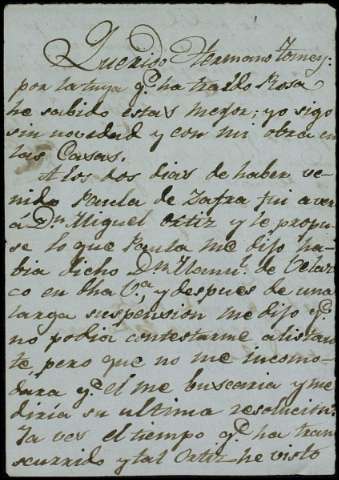 Querido Hermano Tomey:
por la tuya q.e ha traido Rosa
he sabido estas mejor; yo sigo
sin novedad y con mi obra en
las Casas.
A los dos dias de haber ve-
nido Paula de Zafra fui a ver
á Dn. Miguel Ortiz y le propu-
se lo que Paula me dijo ha-
bia dicho Dn. Manl. de Velaz-
co en dha C.a, y despues de una
larga suspension me dijo q.e
no podia contestarme al istan-
te, pero que no me incomo-
dara q.e el me buscaria y me
diria su ultima resolucion.
Ya ves el tiempo q.e ha tran-
scurrido y tal Ortiz he visto